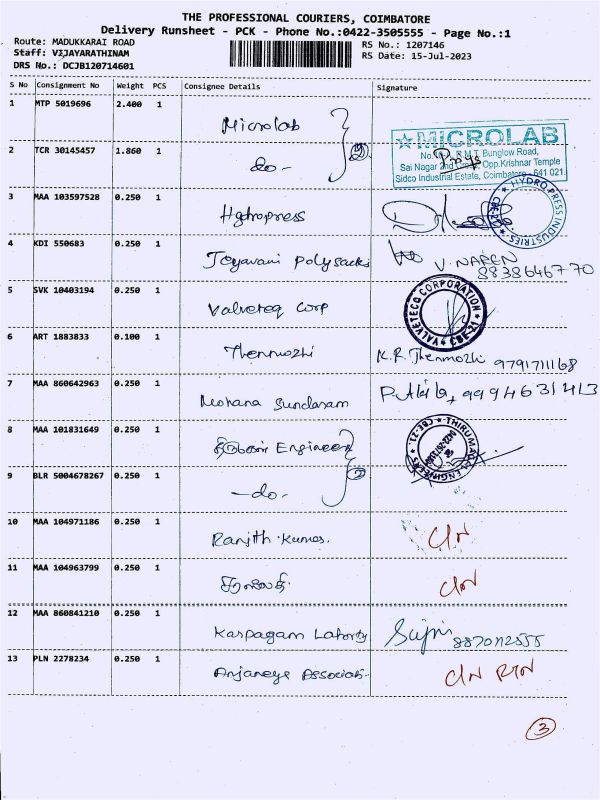 THE PROFESSIONAL COURIERS, COIMBATORE
Delivery Runsheet - PCK - Phone No.:0422-3505555 - Page No.:1
Route: MADUKKARAI ROAD
Staff: VIJAYARATHINAM
DRS No.: DCJB120714601
RS No.: 1207146
RS Date: 15-Jul-2023
S No Consignment No Weight PCS Consignee Details Signature
1 MTP 5019696 2.400 1 Microlab
2 TCR 30145457 1.860 1 -do- 2
★ MICROLAB
Bunglow Road,
Sai Nagar Opp.Krishnar Temple
Sidco Industrial Estate, Coimbatore - 641 021.
3 MAA 103597528 0.250 1 Hydropress
HYDRO PRESS INDUSTRIES ★ CBE-21 ★
4 KDI 550683 0.250 1 Polysacks V. NAREN
8838646770
5 SVK 10403194 0.250 1 Valveteq Corp
VALVETECQ CORPORATION ★ CBE-21 ★
6 ART 1883833 0.100 1 Thenmozhi K.R. Thenmozhi 9791711168
7 MAA 860642963 0.250 1 Mohana Sundaram 9994631413
8 MAA 101831649 0.250 1 Engineers
ENGINEERS ★ CBE-21 ★
9 BLR 5004678267 0.250 1 -do- 2
10 MAA 104971186 0.250 1 Ranjith Kumar. C/N
11 MAA 104963799 0.250 1 C/N
12 MAA 860841210 0.250 1 Karpagam 8870112555
13 PLN 2278234 0.250 1 Anjaneya Associats- C/N RTN
3